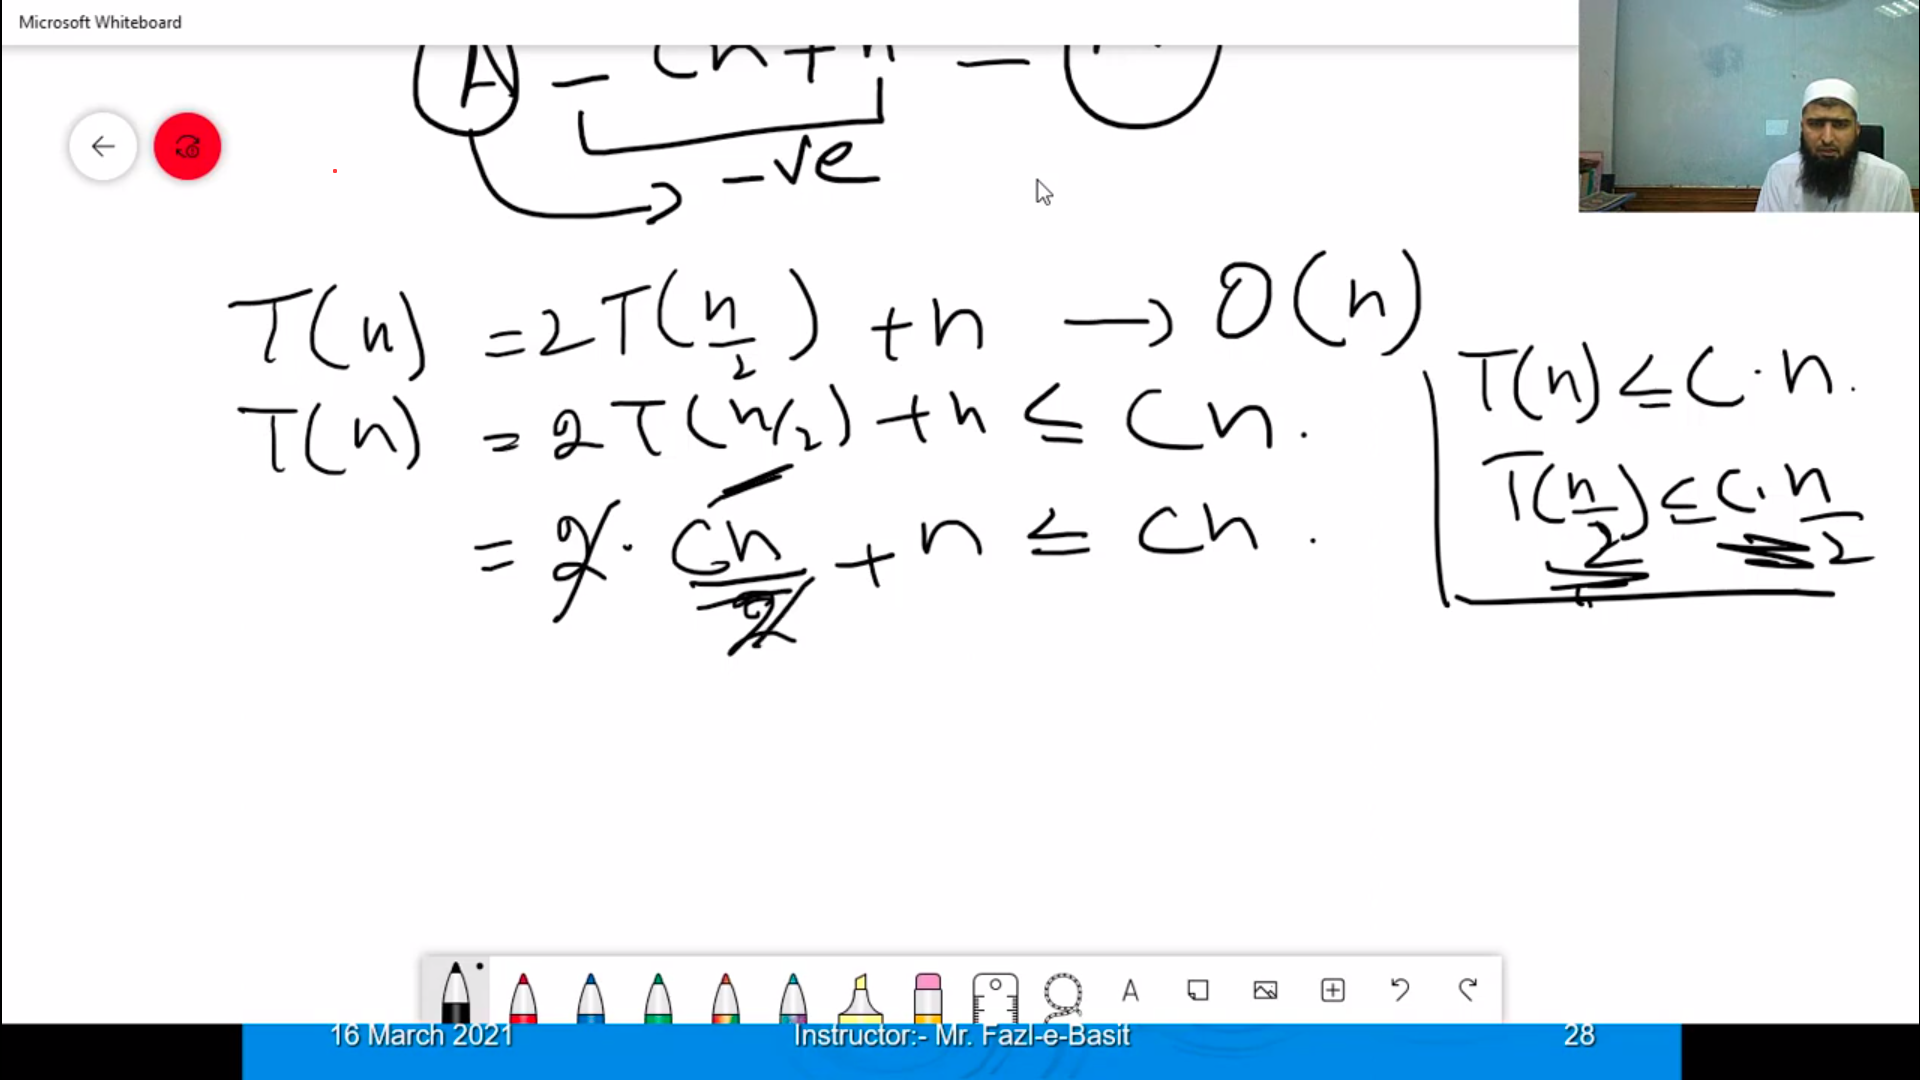 Microsoft Whiteboard
A - cn + n -
-ve
T(n) = 2T(n/2) + n → O(n)
T(n) = 2T(n/2) + n ≤ Cn.
= 2 · Cn/2 + n ≤ Cn.
T(n) ≤ C·n.
T(n/2) ≤ C·n/2
A
16 March 2021
Instructor:- Mr. Fazl-e-Basit
28